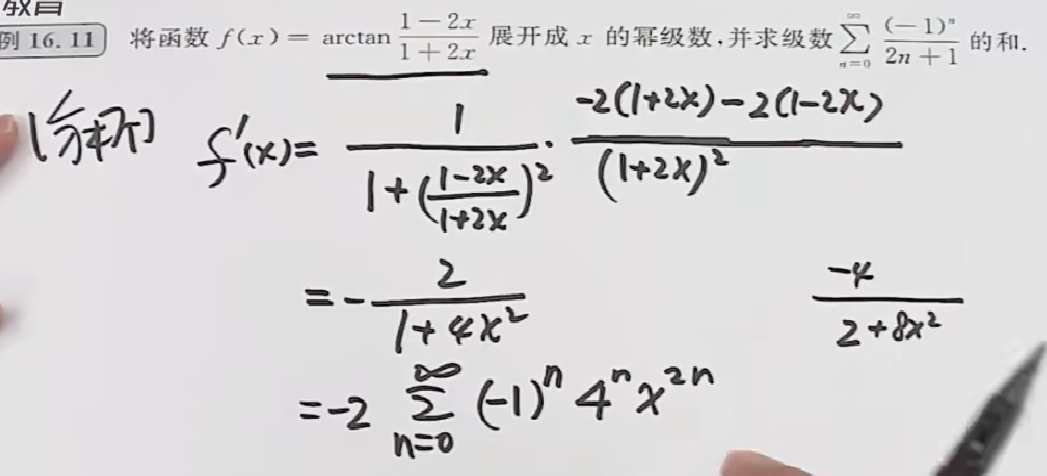 教育
例 16.11 将函数 f(x) = arctan (1-2x)/(1+2x) 展开成 x 的幂级数,并求级数 ∑_{n=0}^{∞} (-1)^n/(2n+1) 的和.
[分析] f'(x)= 1/(1+((1-2x)/(1+2x))^2) · (-2(1+2x)-2(1-2x))/(1+2x)^2
= - 2/(1+4x^2) -4/(2+8x^2)
=-2 ∑_{n=0}^{∞} (-1)^n 4^n x^{2n}